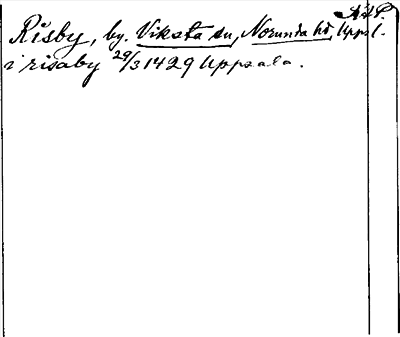 Risby, by. Viksta sn, Norunda hd, Uppl.
i risaby 29/3 1429 Uppsala.